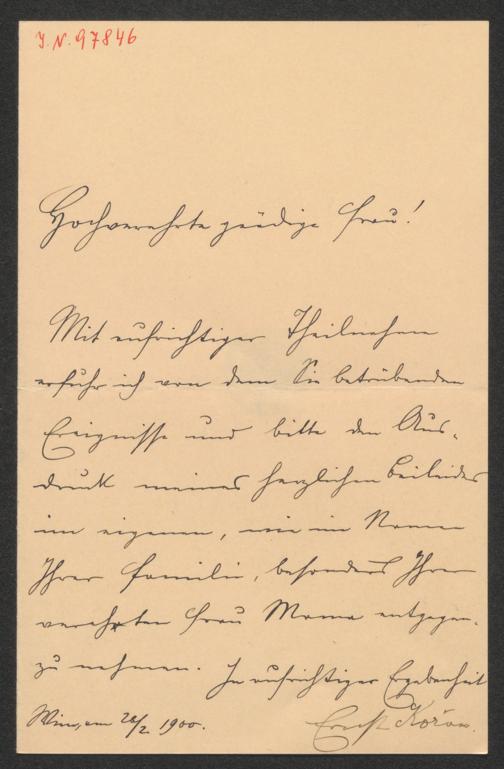 I. N. 97846
Hochverehrte gnädige Frau!
Mit aufrichtiger Theilnahme
erfuhr ich von dem Sie betrübenden
Ereignisse und bitte den Aus-
druck meines herzlichen Beileides
im eigenen, wie im Namen
Ihrer Familie, besonders Ihrer
verehrten Frau Mama entgegen-
zu nehmen. In aufrichtiger Ergebenheit
Wien, am /2. 1900. Ernst